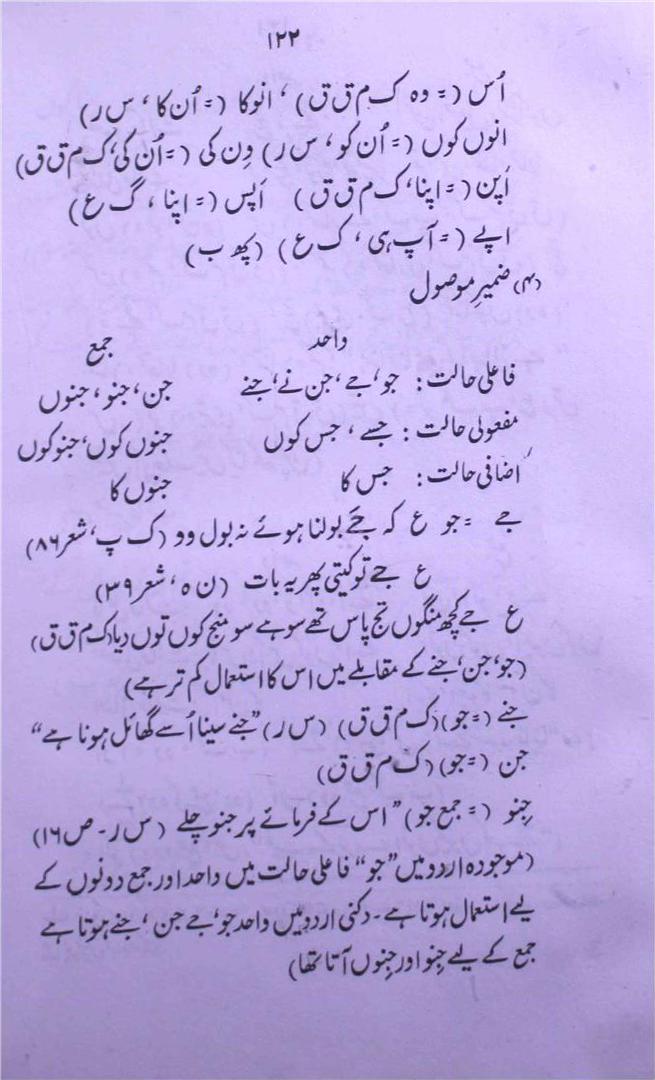 ۱۲۲
اُس (= وہ ک م ق ق) ، انوکا (= اُن کا ، س ر)
انوں کوں (= اُن کو ، س ر) وِن کی (= اُن کی، ک م ق ق)
اَپن (= اپنا، ک م ق ق) اَپس (= اپنا ، گ ع)
اپے (= آپ ہی ، ک ع) (پھ ب)
(۴) ضمیرِ موصول
واحد جمع
فاعلی حالت : جو، جے ، جن نے، جنے جن، جنو ، جنوں
مفعولی حالت : جسے ، جس کوں جنوں کوں، جنو کوں
اضافی حالت : جس کا جنوں کا
جے = جو ع کہ جکے بولنا ہوئے نہ بول وو (ک پ، شعر ۸۶)
ع جے تو کیتی پھر یہ بات (ن ہ ، شعر ۳۹)
ع جے کچھ منگوں تج پاس تھے سو ہے سو منج کوں توں دیا (ک م ق ق)
(جو، جن، جنے کے مقابلے میں اس کا استعمال کم تر ہے)
جنے (= جو) (ک م ق ق) (س ر) ”جنے سینا اُسے گھائل ہونا ہے“
جن (= جو) (ک م ق ق)
جِنو (= جمع جو) ”اس کے فرمائے پر جنو چلے (س ر - ص ۱۶)
(موجودہ اردو میں ”جو“ فاعلی حالت میں واحد اور جمع دونوں کے
لیے استعمال ہوتا ہے۔ دکنی اردو میں واحد جو، جے جن ، جنے ہوتا ہے
جمع کے لیے جِنو اور جِنوں آتا تھا)